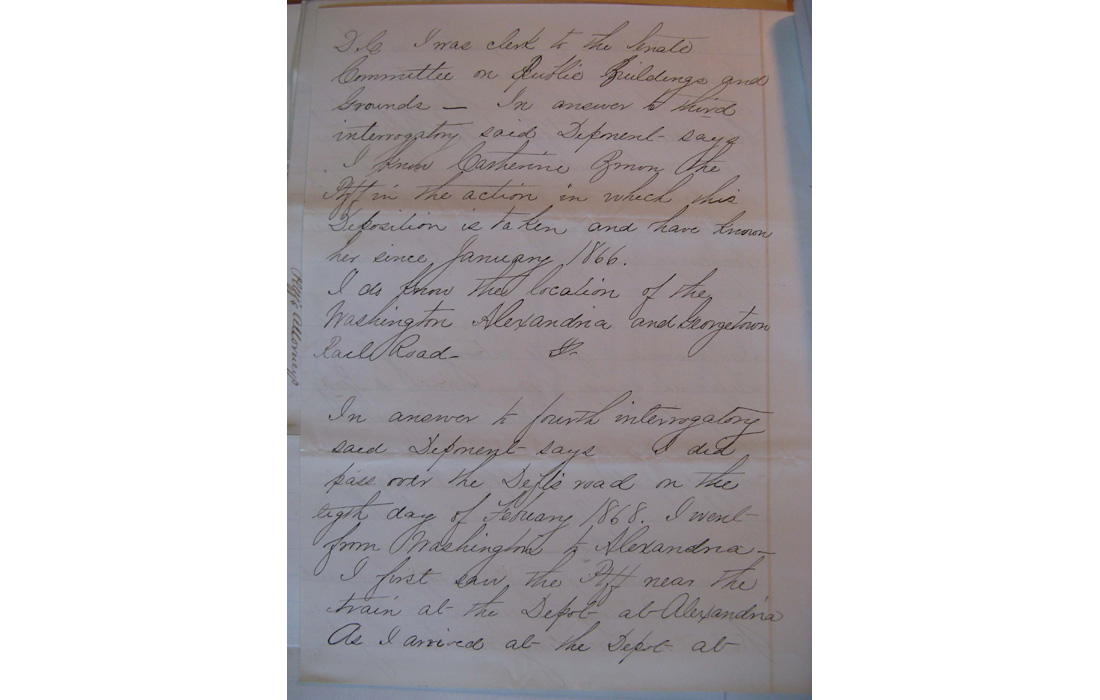 D.C. I was clerk to the Senate
Committee on Public Buildings and
Grounds — In answer to third
interrogatory said Deponent says
I know Catherine Brown the
Plff in the action in which this
Deposition is taken and have known
her since January 1866.
I do know the location of the
Washington Alexandria and Georgetown
Rail Road
In answer to fourth interrogatory
said Deponent says I did
pass over the Defts road on the
eigth day of February 1868. I went
from Washington to Alexandria —
I first saw the Plff near the
train at the Depot at Alexandria
As I arrived at the Depot at
Plff's Attorneys